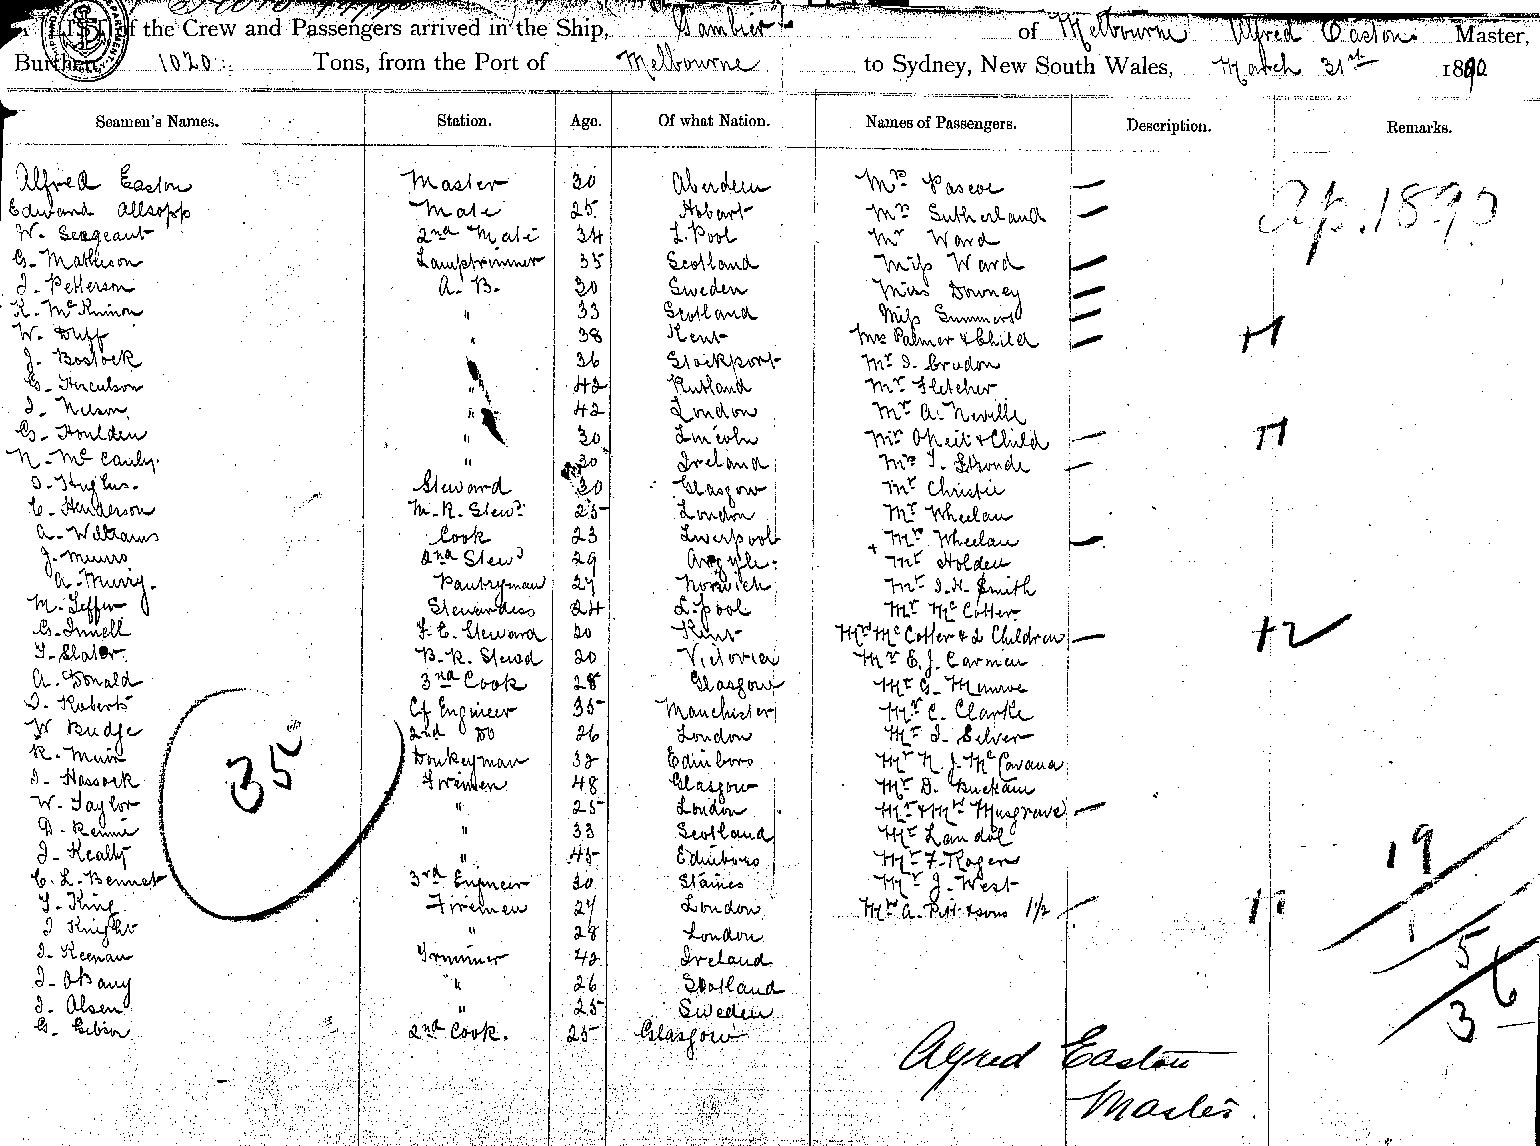 LIST of the Crew and Passengers arrived in the Ship, Gambier of Melbourne Alfred Easton Master,
Burthen, 1020 Tons, from the Port of Melbourne to Sydney, New South Wales, March 31st 1890
Seamen's Names. Station. Age. Of what Nation. Names of Passengers. Description. Remarks.
Alfred Easton Master 30 Aberdeen Mrs Pascoe —
Ap. 1890
Edward Allsopp Mate 25 Hobart Mrs Sutherland —
W. Sergeant 2nd Mate 34 L. Pool Mr Ward
G. Mathison Lamptrimmer 35 Scotland Miss Ward —
J. Petterson A. B. 30 Sweden Miss Downey —
K. McKinnon " 33 Scotland Miss Summers —
W. Duff " 38 Kent Mrs Palmer & Child — +1
J. Bostock 36 Stockport Mr J. Crudon
G. Herculson " 42 Rutland Mr Fletcher
J. Nelson " 42 London Mr A. Neville
G. Houlden " 30 Lincoln Mrs & Child — +1
N. McCauly " 30 Ireland Mrs —
Hughes. Steward 30 Glasgow Mr Christie
C. Henderson M. R. Stewd 25 London Mr Wheelan
A. Williams Cook 23 Liverpool + Mrs Wheelan —
J. Munro 2nd Stewd 29 Argyle Mr Holden
A. Murry. Pantryman 27 Norwich Mr J. H. Smith
M. Stewardess 24 L. pool Mr McCotter
G. Innell F. C. Steward 20 Kent Mrs McCotter & 2 Children — +2
Slater B. R. Stewd 20 Victoria Mr E. J. Carmen
A. Donald 3rd Cook 28 Glasgow Mr G.
J. Roberts Cf Engineer 35 Manchester Mr C. Clarke
W Budge 2nd Do 26 London Mr J. Silver
35
R. Muir Donkeyman 32 Edinboro Mr N. J. McCavana
J. Hassock Firemen 48 Glasgow Mr D. Buckan
W. Taylor " 25 London Mr & Mrs Musgrave —
D. Rennie " 33 Scotland Mr Landal
19
J. Kealty " 45 Edinboro Mr F. Roger
C. L. Bennet 3rd Engineer 30 Staines Mr J. West
King Firemen 27 London Mrs A. Pitt & sons 1/2 —
1
J Knight " 28 London
5
J. Keenan Trimmer 42 Ireland
6
J. " 26 Scotland
J. Olsen " 25 Sweden
3
G. Gibson 2nd Cook. 25 Glasgow
Alfred Easton
Master